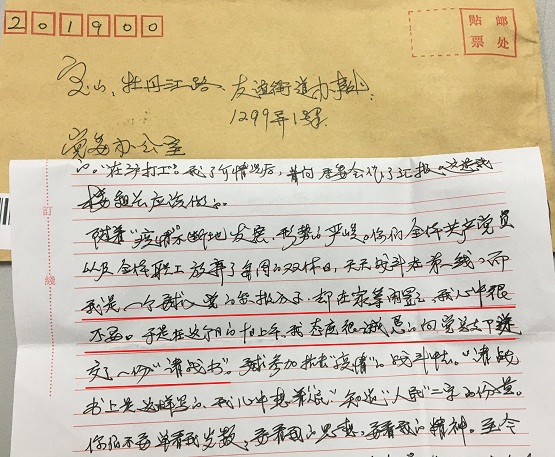 201900
贴邮
票处
宝山、牡丹江路、友谊街道办事处
1299弄1号
党委办公室
的。在沪打工。我了解情况后,曾向居委会作了汇报。这是我
楼组长应该做的。
随着“疫情”不断地发展,形势的严峻。你们全体共产党员
以及全体职工放弃了年周的双休日,天天战斗在第一线。而
我是一个入党的积极分子,却在家等闲置。我心中很
不安。于是在这个月的10日上午,我态度很诚恳的向党总支部递
交了一份“请战书”。要求参加抗击“疫情”的战斗中去。“请战
书上是这样写的,我心中想着“人民”知道“人民”二字的份量。
你们不要单看我岁数,要看我的思想,要看我的精神。至今
订
线